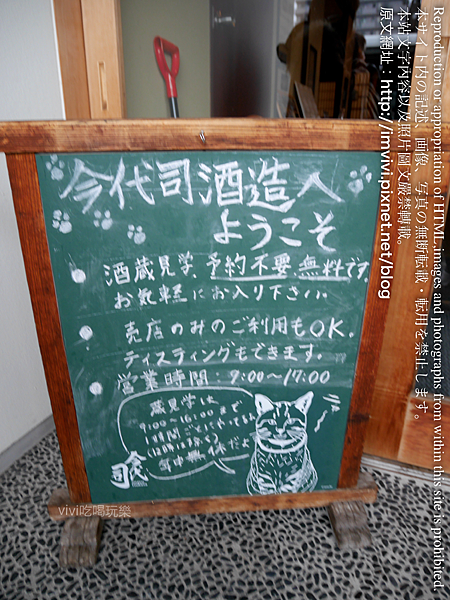 今代司酒造へ
ようこそ
酒蔵見学、予約不要無料です
お気軽にお入り下さい。
売店のみのご利用もOK。
ティスティングもできます。
営業時間：9:00〜17:00
蔵見学は
9:00〜16:00まで、
1時間ごとにやってるよ
(12時は除く)
年中無休だよ
ニャ〜
今代司
vivi吃喝玩樂
Reproduction or appropriation of HTML,images and photographs from within this site is prohibited.
本サイト内の記述、画像、写真の無断転載・転用を禁止します。
本站文字內容以及照片圖文嚴禁轉載。
原文網址：http://imvivi.pixnet.net/blog